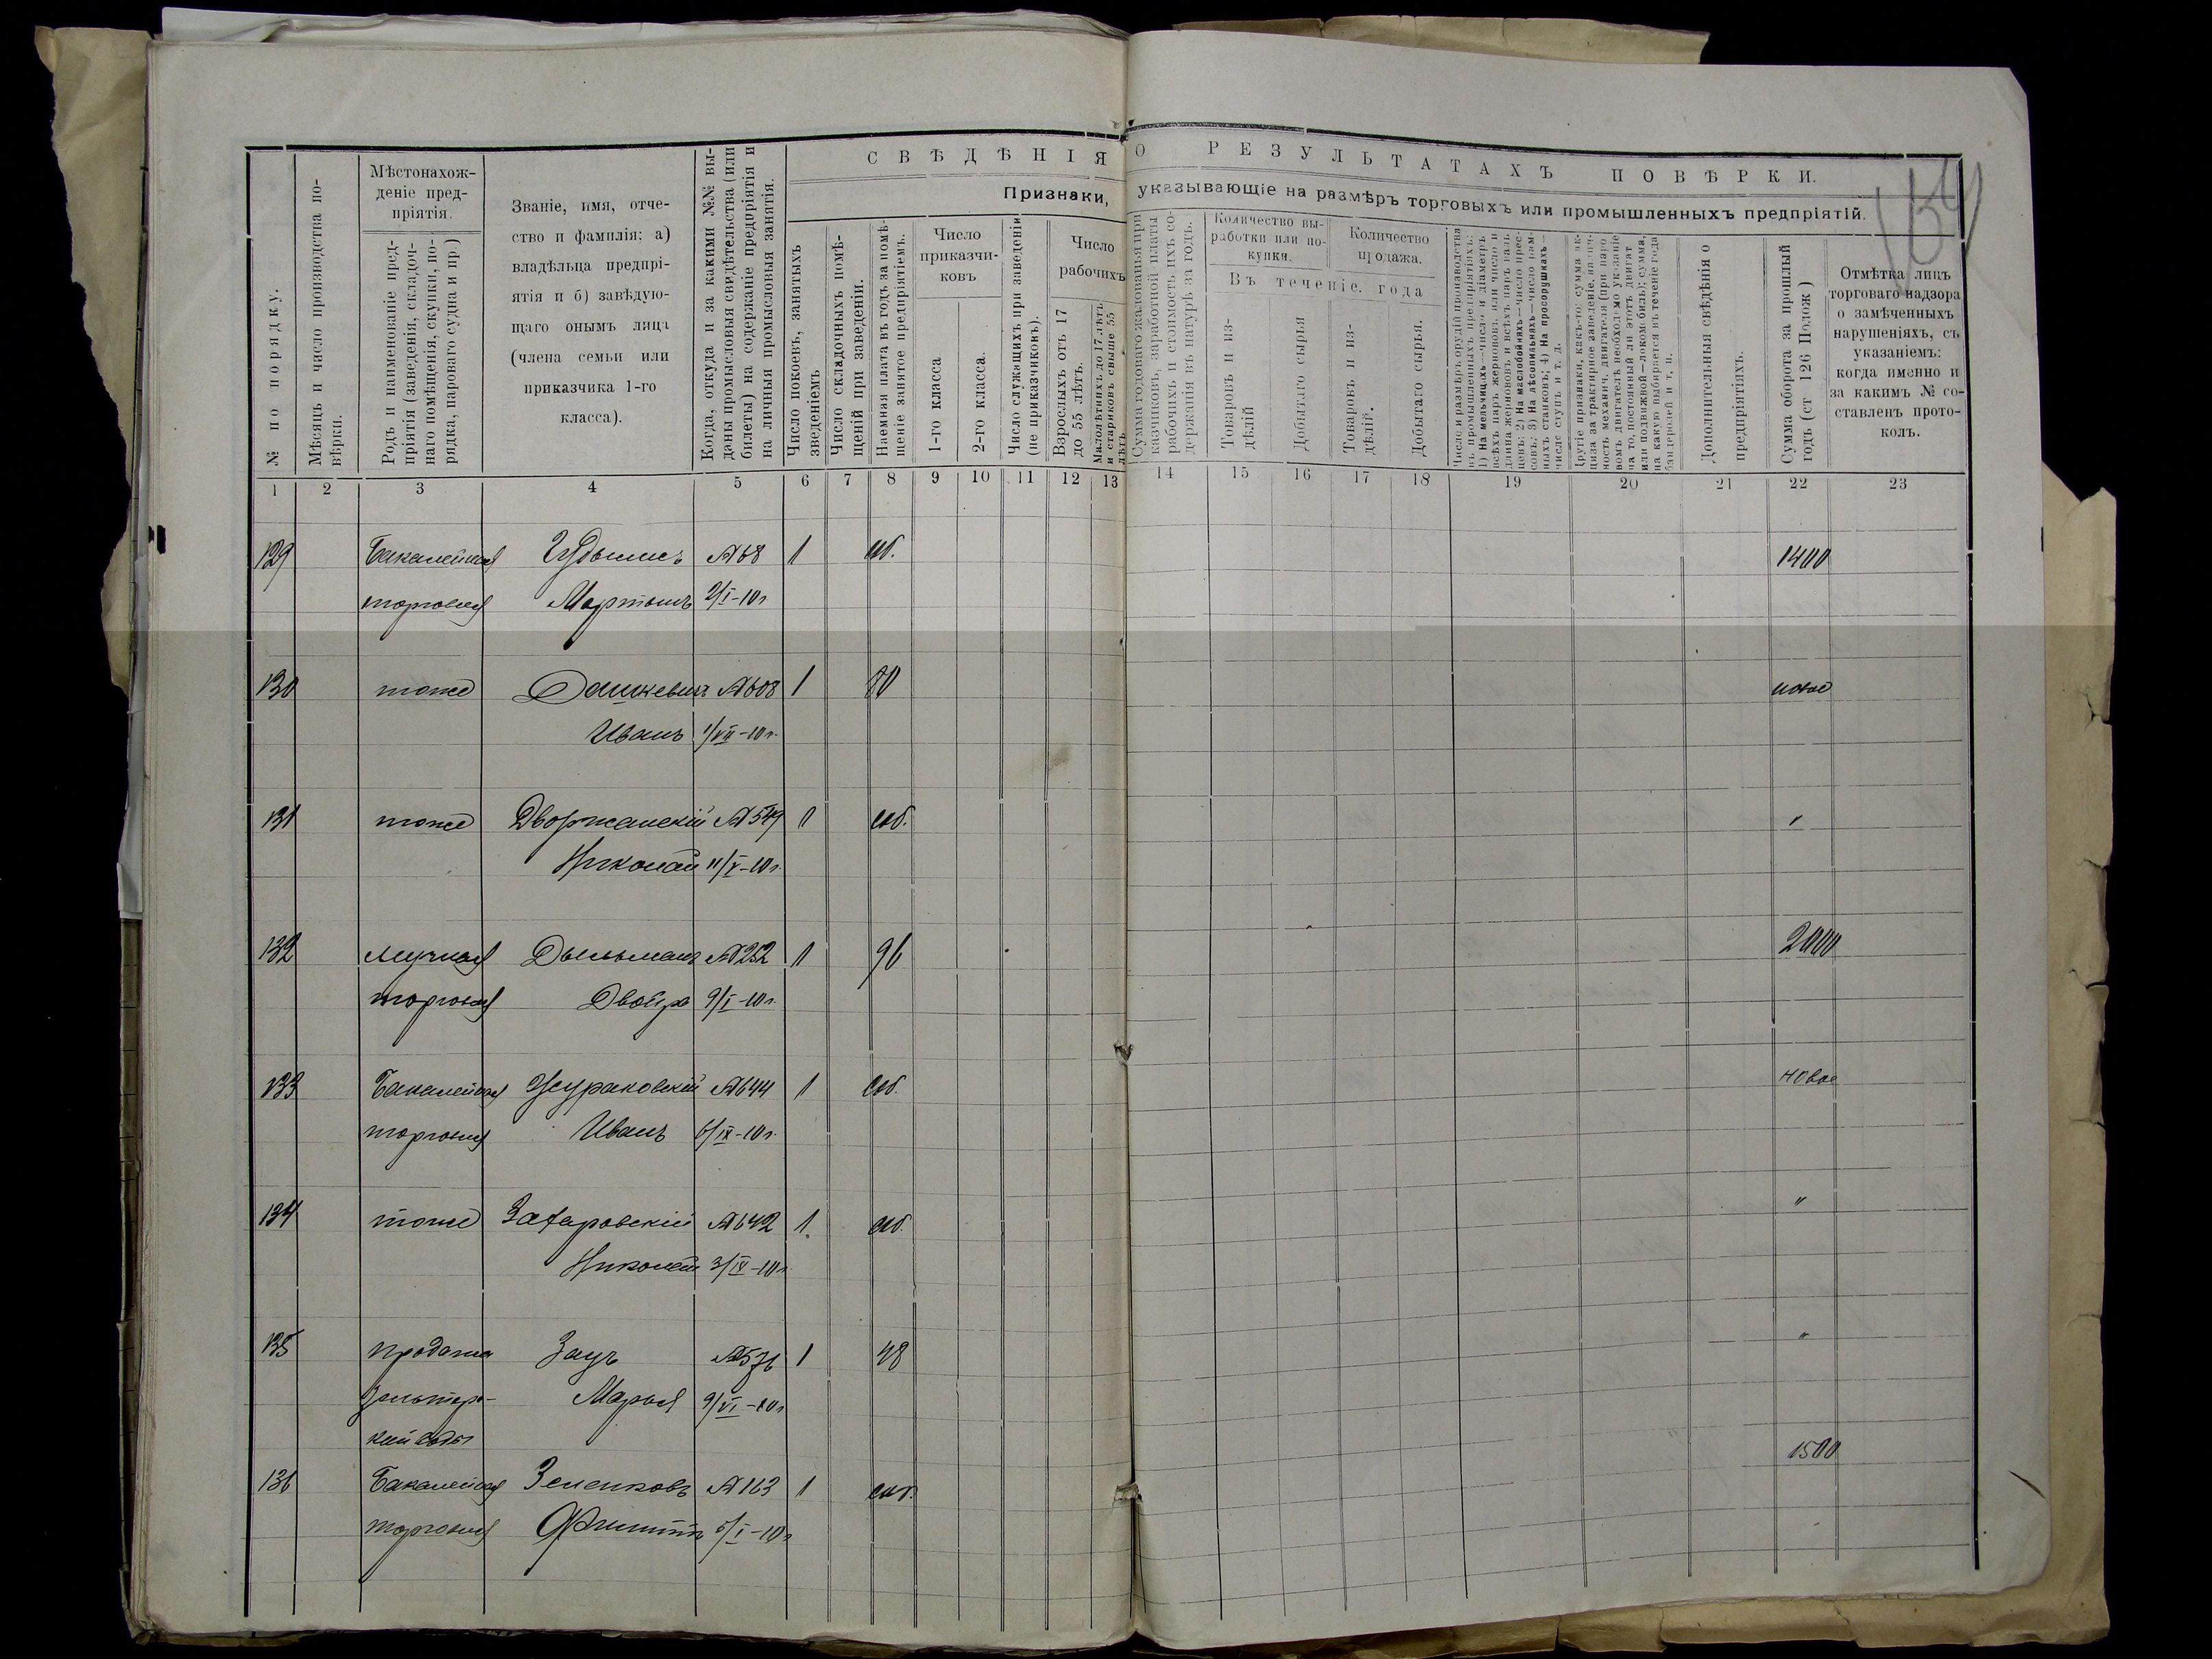 СВѢДѢНІЯ О РЕЗУЛЬТАТАХЪ ПОВѢРКИ.
Признаки, указывающіе на размѣръ торговыхъ или промышленныхъ предпріятій.
№ по порядку.
Мѣсяцъ и число производства по-
вѣрки.
Мѣстонахож-
деніе пред-
пріятія.
Родъ и наименованіе пред-
пріятія (заведенія, складоч-
наго помѣщенія, скупки, по-
рядка, пароваго судна и пр.)
Званіе, имя, отче-
ство и фамилія: а)
владѣльца предпрі-
ятія и б) завѣдую-
щаго онымъ лица
(члена семьи или
приказчика 1-го
класса).
Когда, откуда и за какими №№ вы-
даны промысловыя свидѣтельства (или
билеты) на содержаніе предпріятія и
на личныя промысловыя занятія.
Число покоевъ, занятыхъ
зведеніемъ
Число складочныхъ помѣ-
щеній при заведеніи.
Наемная плата въ годъ за помѣ-
щеніе занятое предпріятіемъ.
Число
приказчи-
ковъ
1-го класса
2-го класса.
Число служащихъ при заведеніи
(не приказчиковъ).
Число
рабочихъ
Взрослыхъ отъ 17
до 55 лѣтъ.
Малолѣтнихъ до 17 лѣтъ
и стариковъ свыше 55
лѣтъ
Сумма годоваго жалованья при
казчиковъ, заработной платы
рабочихъ и стоимость ихъ со-
держанія въ натурѣ за годъ.
Количество вы-
работки или по-
купки.
Количество
продажа.
Въ теченіе года
Товаровъ и из-
дѣлій
Добытаго сырья
Товаровъ и из-
дѣлій.
Добытаго сырья.
Число и размѣръ орудій производства
въ промышленныхъ предпріятіяхъ:
1) На мельницахъ—число и діаметръ
всѣхъ паръ жернововъ, или число и
длина жернововъ и всѣхъ паръ валь
цевъ; 2) На маслобойняхъ—число прес-
совъ; 3) На лѣсопильняхъ—число рам-
ныхъ станковъ; 4) На просорушкахъ—
число ступъ и т. д.
Другіе признаки, какъ-то: сумма ак-
циза за трактирное заведеніе, налич-
ность механич. двигателя (при паро
вомъ двигателѣ необходимо указаніе
на то, постоянный ли этотъ двигат
или подвижной—локомобиль); сумма,
на какую выбирается въ теченіе года
бандеролей и т. п.
Дополнительныя свѣдѣнія о
предпріятіяхъ.
Сумма оборота за прошлый
годъ (ст 126 Полож)
Отмѣтка лицъ
торговаго надзора
о замѣченныхъ
нарушеніяхъ, съ
указаніемъ:
когда именно и
за какимъ № со-
ставленъ прото-
колъ.
1 2 3 4 5 6 7 8 9 10 11 12 13 14 15 16 17 18 19 20 21 22 23
129 Бакалейная № 68 1 соб. 1400
торговля Мартынъ 2/I-10 г
130 тоже Дашкевичъ № 608 1 80 новое
Иванъ 1/VII-10 г.
131 тоже Дворжанскій № 549 1 соб. "
Николай 11/V-10 г.
132 мучная Дыльманъ № 252 1 96 2000
торговля Двойра 9/I-10 г.
133 Бакалейная Жураковскій № 644 1 соб. новое
торговля Иванъ 6/IX-10 г.
134 тоже Захаровскій № 642 1 соб. "
Николай 3/IX-10 г.
135 продажа Зацъ № 576 1 48 "
зельтерс-
Марья 9/VI-10 г
кой воды
136 Бакалейная Зеленковъ № 163 1 соб. 1500
торговля Филиппъ 5/I-10 г